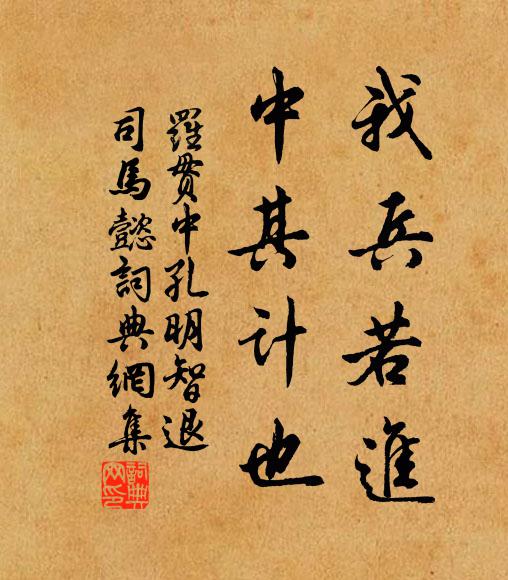 我兵若進
中其計也
羅貫中孔明智退
司馬懿詞典網集
詞典网印